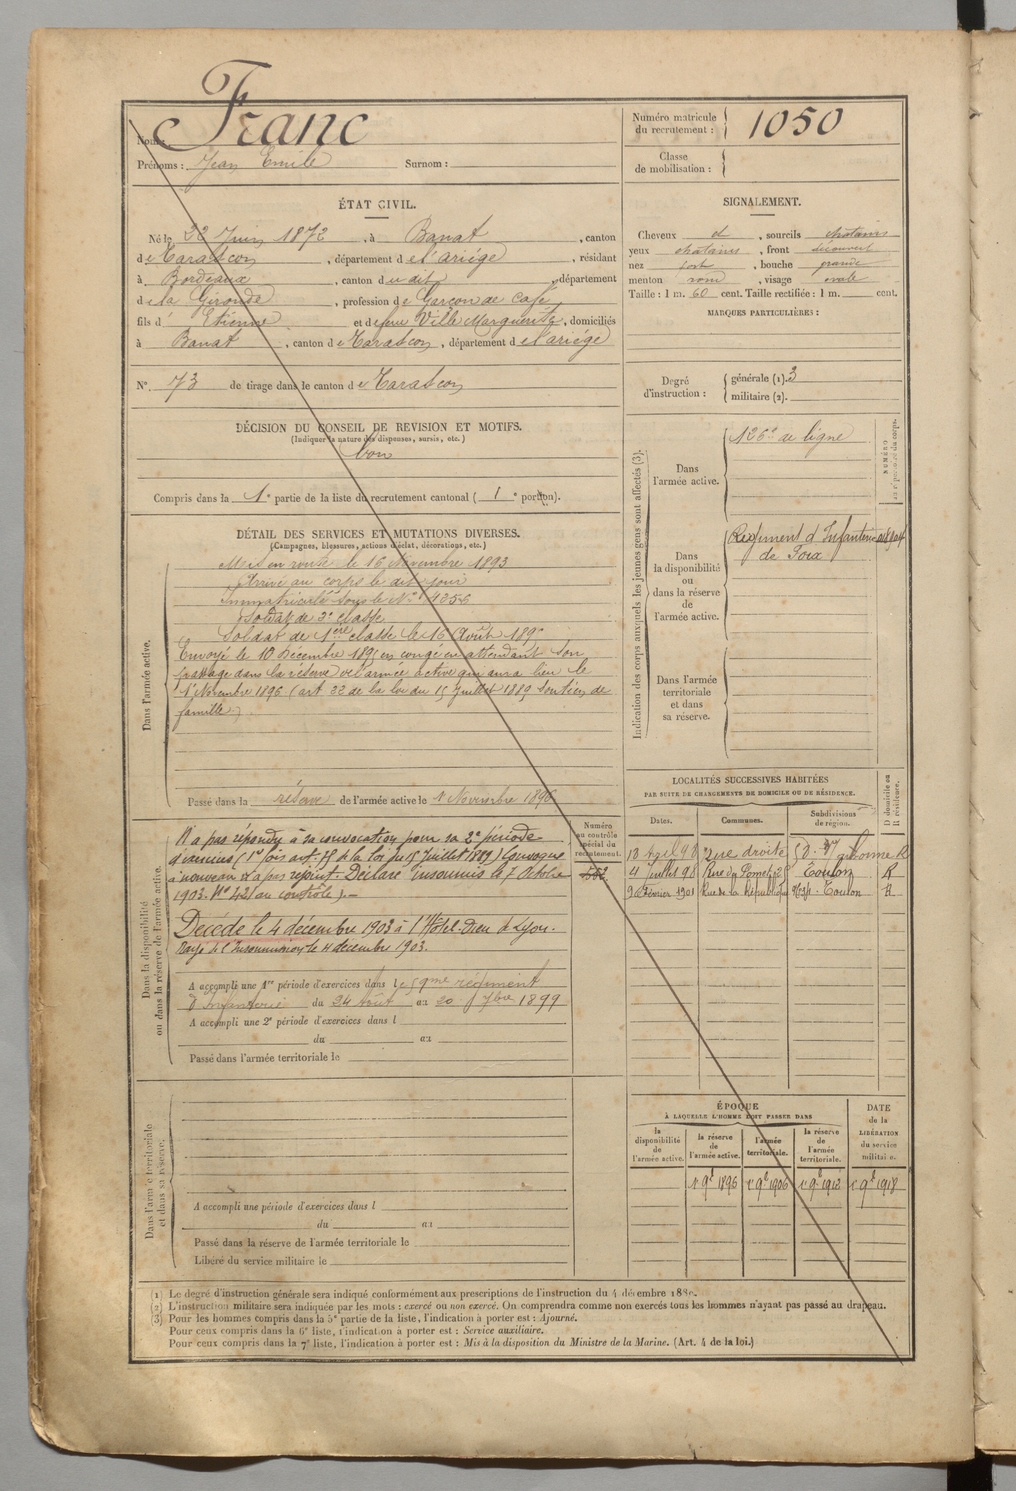 Nom : Franc
Prénoms : Jean Emile Surnom :
Numéro matricule du recrutement : 1050
Classe de mobilisation :
ÉTAT CIVIL.
Né le 22 Juin 1872, à Banat, canton
de Tarascon, département de l'ariége, résidant
à Bordeaux, canton du dit, département
de la Gironde, profession de Garçon de Café
fils d' Etienne et de feue Ville Marguerite, domiciliés
à Banat, canton de Tarascon, département de l'ariége
N°. 73 de tirage dans le canton de Tarascon
SIGNALEMENT.
Cheveux d, sourcils chatains
yeux chatains, front découvert
nez fort, bouche grande
menton rond, visage ovale
Taille : 1 m. 60 cent. Taille rectifiée : 1 m. cent.
MARQUES PARTICULIÈRES :
Degré d'instruction : générale (1). 3
militaire (2).
DÉCISION DU CONSEIL DE REVISION ET MOTIFS.
(Indiquer la nature des dispenses, sursis, etc.)
bon
Compris dans la 1e partie de la liste du recrutement cantonal ( 1e portion).
DÉTAIL DES SERVICES ET MUTATIONS DIVERSES.
(Campagnes, blessures, actions d'éclat, décorations, etc.)
Dans l'armée active.
Mis en route le 16 Novembre 1893
Arrivé au corps le dit jour
Immatriculé sous le N° 4356
Soldat de 2e classe
Soldat de 1ère classe le 16 Août 189
Envoyé le 10 Décembre 1895 en congé en attendant son
passage dans la réserve de l'armée active qui aura lieu le
1 Novembre 1896 (art 22 de la loi du 15 Juillet 1889 Soutien de
famille)
Passé dans la réserve de l'armée active le 1 Novembre 1896
Indication des corps auxquels les jeunes gens sont affectés (3).
Dans l'armée active.
126e de ligne
NUMÉRO
Dans la disponibilité ou dans la réserve de l'armée active.
Régiment d'Infanterie
de Foix
Dans l'armée territoriale et dans sa réserve.
LOCALITÉS SUCCESSIVES HABITÉES
PAR SUITE DE CHANGEMENTS DE DOMICILE OU DE RÉSIDENCE.
Dates. Communes. Subdivisions de région. D domicile ou R résidence.
18 April 98 rue droite Narbonne R
4 juillet 98 Rue du Pomet 28 Toulon R
9 Février 1901 Rue de la République Toulon R
Dans la disponibilité ou dans la réserve de l'armée active.
Numéro au contrôle spécial du recrutement.
N'a pas répondu à sa convocation pour sa 2e période
d'exercices (1re fois art. 75 de la loi du 15 Juillet 1889) Convoqué
à nouveau n'a pas rejoint. Déclaré insoumis le 7 Octobre
1903. N° 421 au contrôle).
Décédé le 4 décembre 1903 à l'Hôtel-Dieu de Lyon.
Rayé de l'Insoumission le 4 décembre 1903.
A accompli une 1re période d'exercices dans le 59me régiment
d'Infanterie du 24 Août au 20 7bre 1899
A accompli une 2e période d'exercices dans l
du au
Passé dans l'armée territoriale le
Dans l'armée territoriale et dans sa réserve.
A accompli une période d'exercices dans l
du au
Passé dans la réserve de l'armée territoriale le
Libéré du service militaire le
ÉPOQUE
À LAQUELLE L'HOMME DOIT PASSER DANS
DATE de la LIBÉRATION du service militaire.
la disponibilité de l'armée active. la réserve de l'armée active. l'armée territoriale. la réserve de l'armée territoriale.
1 9b 1896 1 9b 1906 1 9b 1912 1 9b 1918
(1) Le degré d'instruction générale sera indiqué conformément aux prescriptions de l'instruction du 4 décembre 1889.
(2) L'instruction militaire sera indiquée par les mots : exercé ou non exercé. On comprendra comme non exercés tous les hommes n'ayant pas passé au drapeau.
(3) Pour les hommes compris dans la 5e partie de la liste, l'indication à porter est : Ajourné.
Pour ceux compris dans la 6e liste, l'indication à porter est : Service auxiliaire.
Pour ceux compris dans la 7e liste, l'indication à porter est : Mis à la disposition du Ministre de la Marine. (Art. 4 de la loi.)